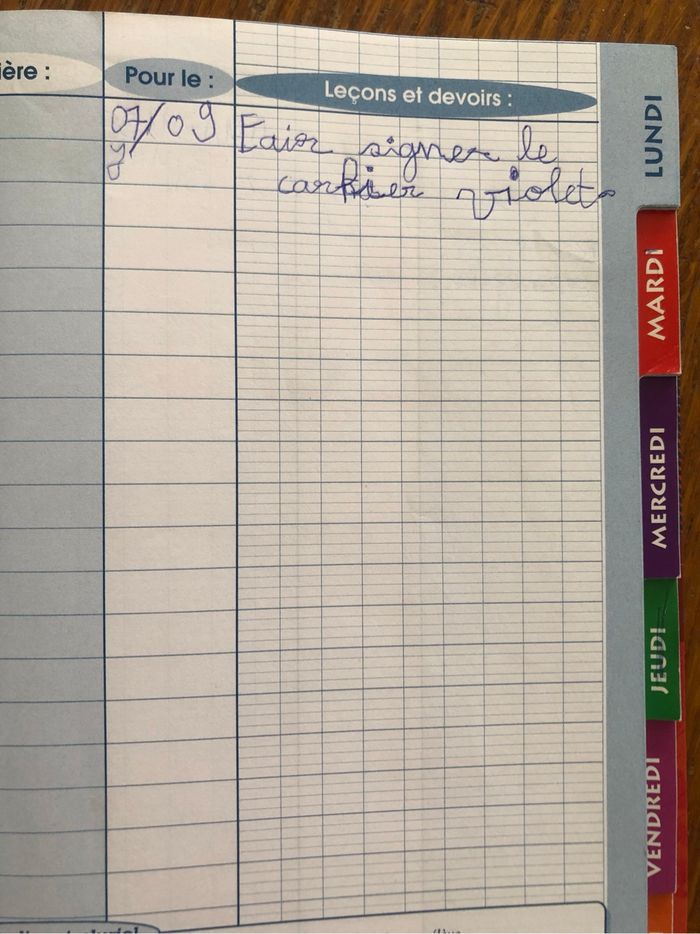 ière :
Pour le :
Leçons et devoirs :
07/09 Fair signer le
carhier violet
LUNDI
MARDI
MERCREDI
JEUDI
VENDREDI